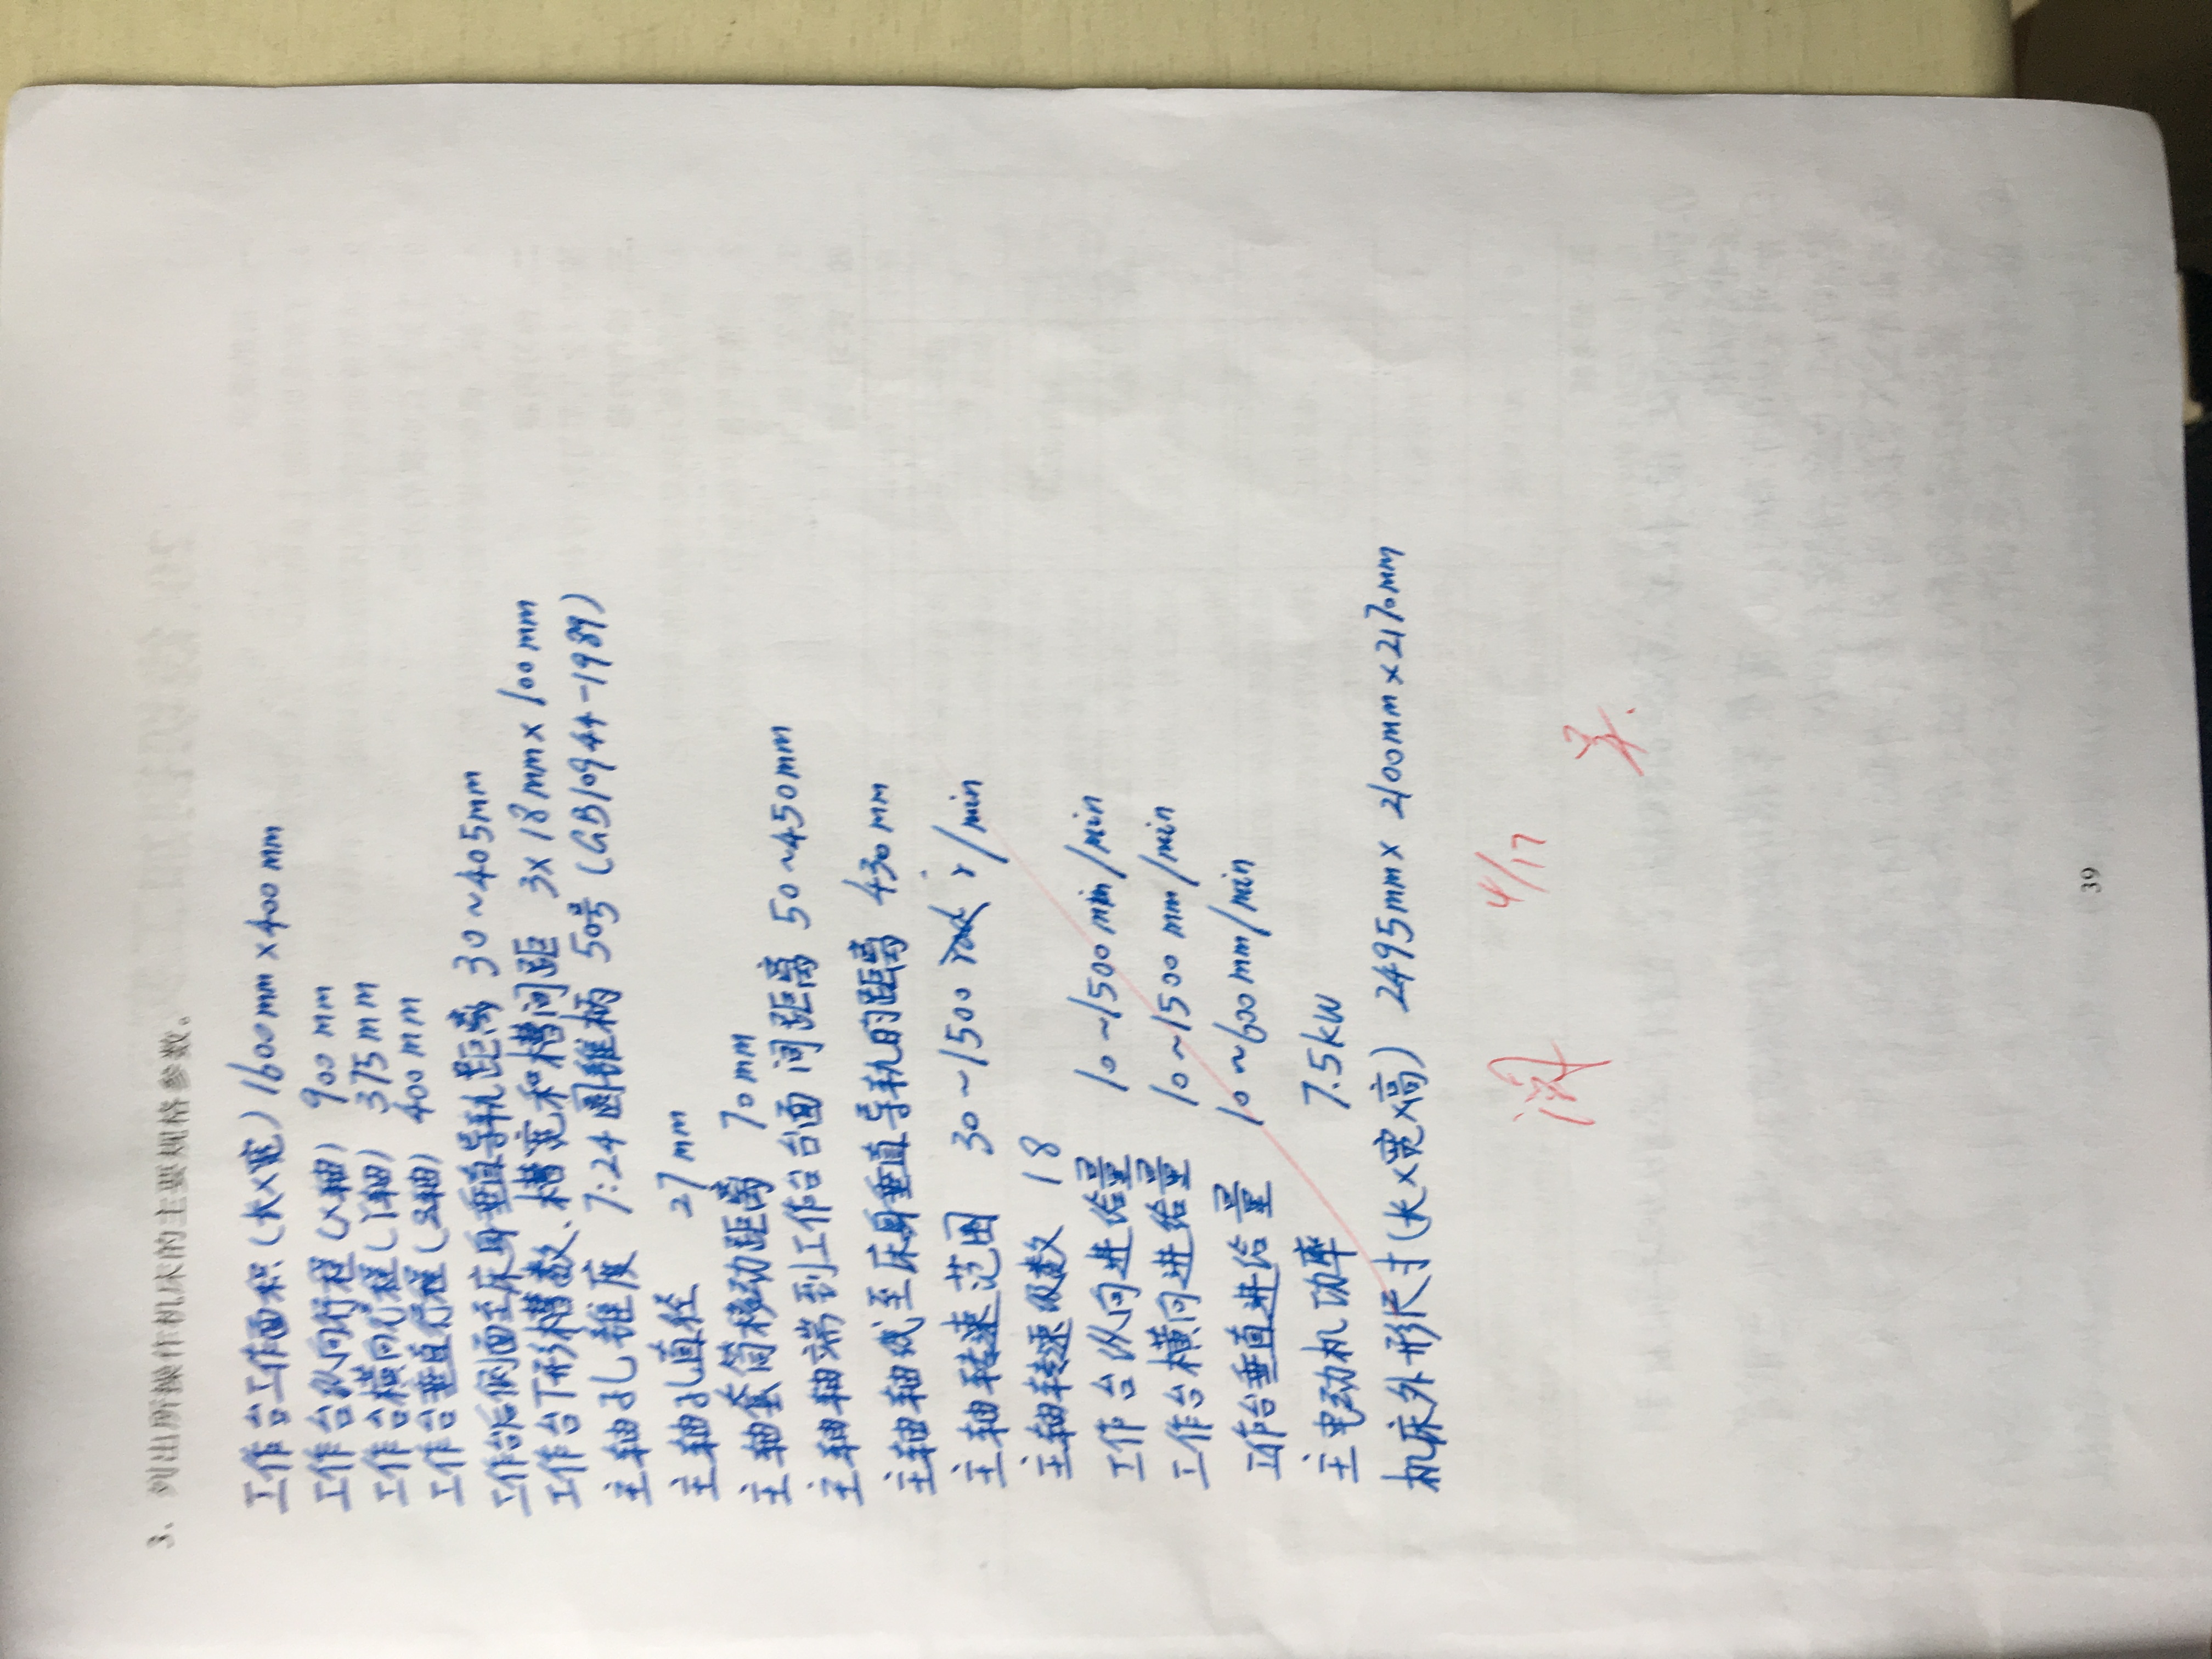 3. 列出所操作机床的主要规格参数。
工作台工作面积(长×宽) 1600mm×400mm
工作台纵向行程(X轴) 900mm
工作台横向行程(Y轴) 375mm
工作台垂直行程(Z轴) 400mm
工作台后侧面至床身垂直导轨距离 30~405mm
工作台T形槽数、槽宽和槽间距 3×18mm×100mm
主轴孔锥度 7:24圆锥柄 50号 (GB10944-1989)
主轴孔直径 27mm
主轴套筒移动距离 70mm
主轴轴端到工作台台面间距离 50~450mm
主轴轴线至床身垂直导轨的距离 430mm
主轴转速范围 30~1500 r/min
主轴转速级数 18
工作台纵向进给量 10~1500 mm/min
工作台横向进给量 10~1500 mm/min
工作台垂直进给量 10~600mm/min
主电动机功率 7.5kW
机床外形尺寸(长×宽×高) 2495mm×2100mm×2170mm
阅 4/17
39